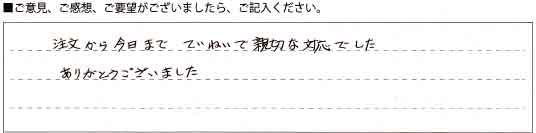 ■ご意見、ご感想、ご要望がございましたら、ご記入ください。
注文から今日まで ていねいで親切な対応でした
ありがとうございました